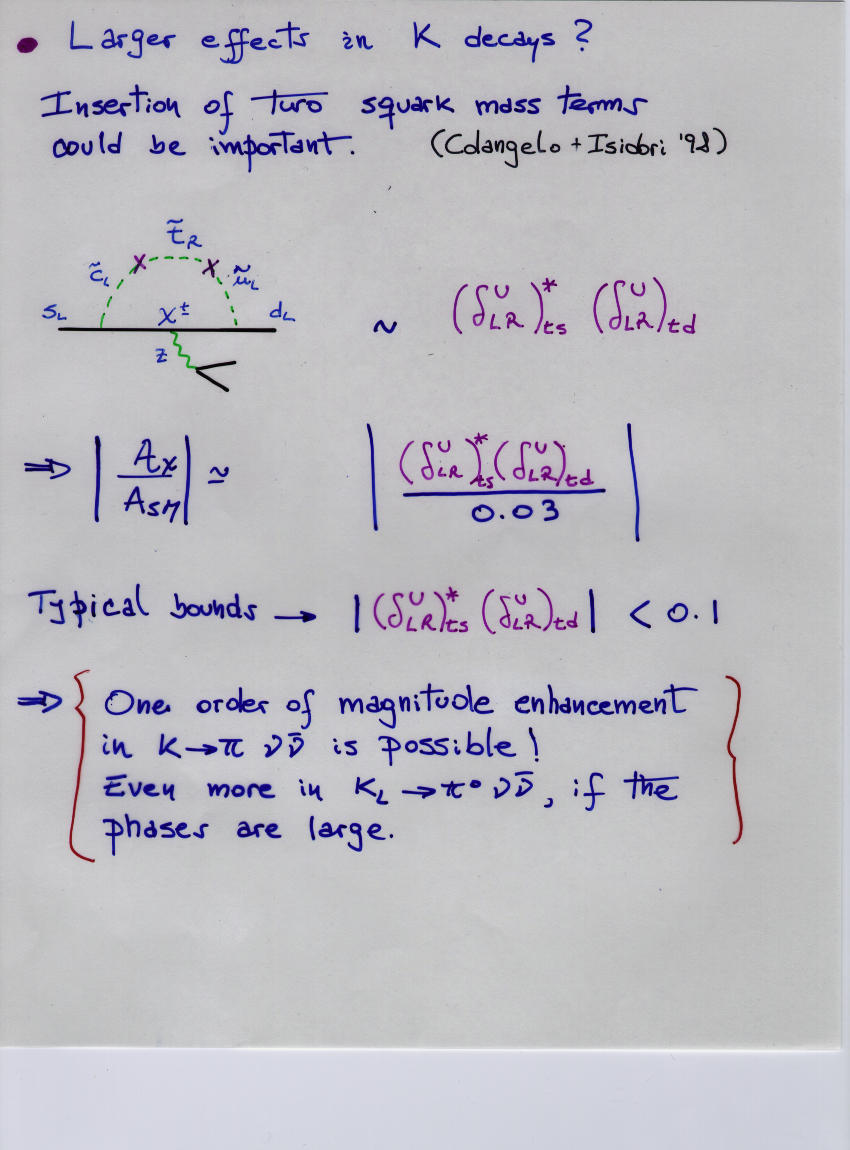 • Larger effects in K decays?
Insertion of two squark mass terms
could be important. (Colangelo + Isidori '98)
t̃_R
c̃_L ũ_L
s_L χ^± d_L
z
~ (δ^U_LR)*_ts (δ^U_LR)_td
⇒ |A_χ / A_SM| ≃ |(δ^U_LR)*_ts (δ^U_LR)_td / 0.03|
Typical bounds → |(δ^U_LR)*_ts (δ^U_LR)_td| < 0.1
⇒ { One order of magnitude enhancement
in K→π νν̄ is possible!
Even more in K_L →π° νν̄, if the
phases are large. }